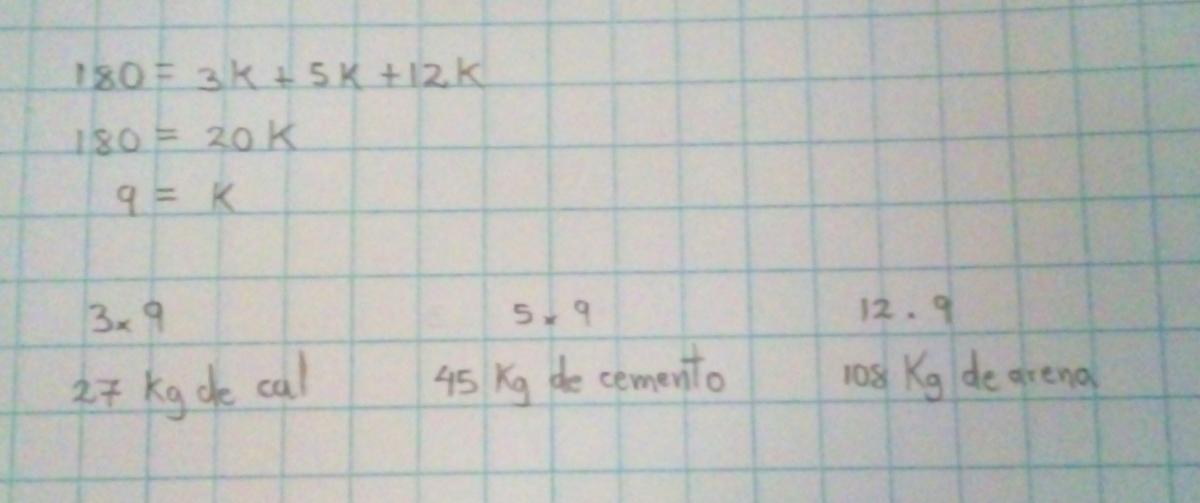 180 = 3K + 5K + 12K
180 = 20K
9 = K
3 x 9 5 x 9 12 . 9
27 Kg de cal 45 Kg de cemento 108 Kg de arena